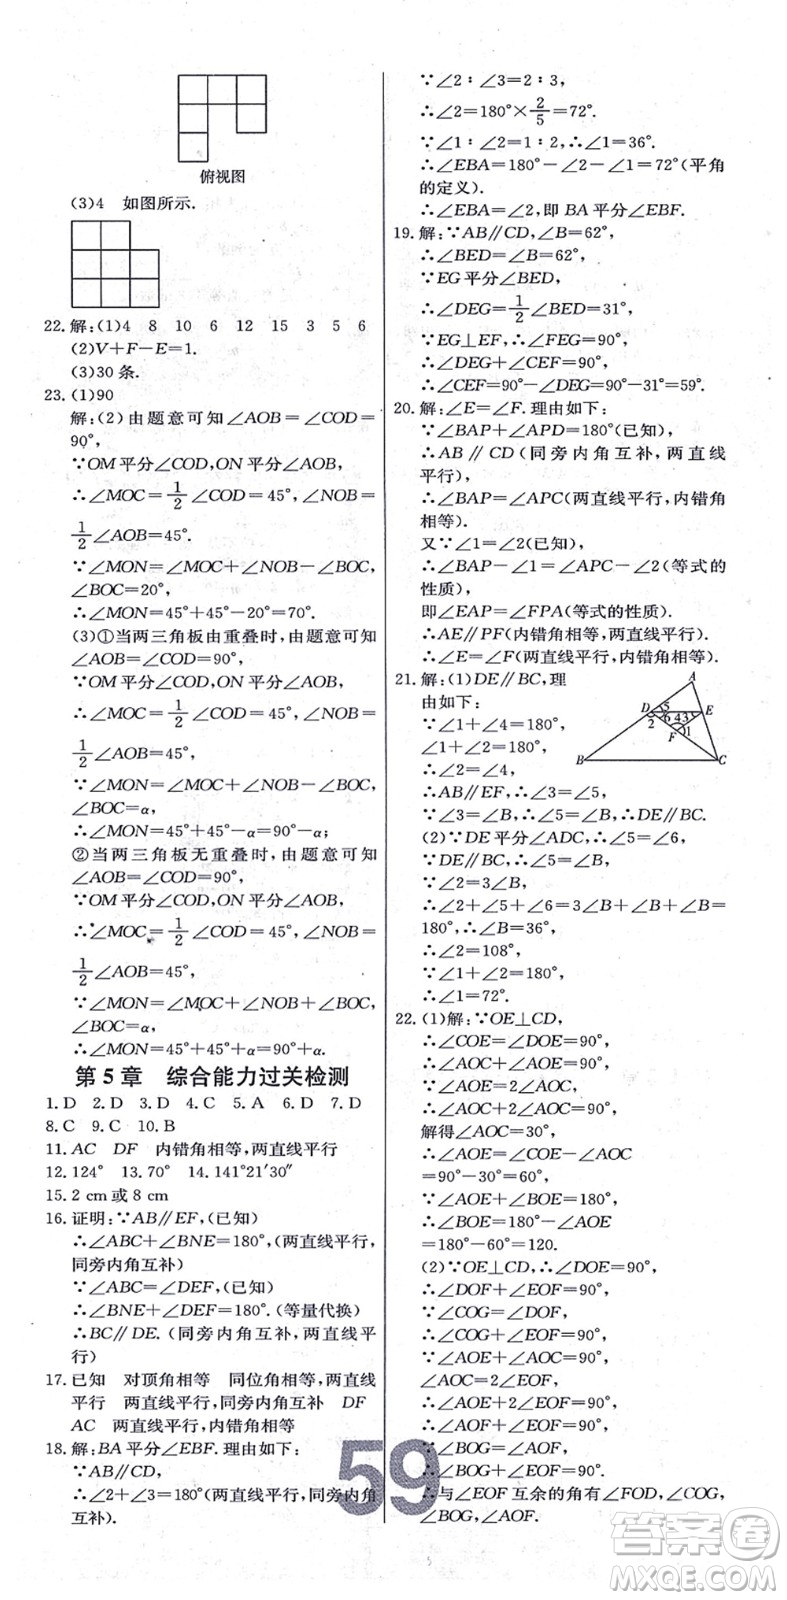 俯视图
(3)4 如图所示.
22.解:(1)4 8 10 6 12 15 3 5 6
(2)V+F-E=1.
(3)30 条.
23.(1)90
解:(2)由题意可知∠AOB=∠COD=
90°,
∵OM平分∠COD,ON平分∠AOB,
∴∠MOC=1/2∠COD=45°,∠NOB=
1/2∠AOB=45°.
∵∠MON=∠MOC+∠NOB-∠BOC,
∠BOC=20°,
∴∠MON=45°+45°-20°=70°.
(3)①当两三角板由重叠时,由题意可知
∠AOB=∠COD=90°,
∵OM平分∠COD,ON平分∠AOB,
∴∠MOC=1/2∠COD=45°,∠NOB=
1/2∠AOB=45°,
∵∠MON=∠MOC+∠NOB-∠BOC,
∠BOC=α,
∴∠MON=45°+45°-α=90°-α;
②当两三角板无重叠时,由题意可知
∠AOB=∠COD=90°,
∵OM平分∠COD,ON平分∠AOB,
∴∠MOC=1/2∠COD=45°,∠NOB=
1/2∠AOB=45°,
∵∠MON=∠MOC+∠NOB+∠BOC,
∠BOC=α,
∴∠MON=45°+45°+α=90°+α.
第5章 综合能力过关检测
1.D 2.D 3.D 4.C 5.A 6.D 7.D
8.C 9.C 10.B
11.AC DF 内错角相等,两直线平行
12.124° 13.70° 14.141°21′30″
15.2 cm或8 cm
16.证明:∵AB∥EF,(已知)
∴∠ABC+∠BNE=180°,(两直线平行,
同旁内角互补)
∵∠ABC=∠DEF,(已知)
∴∠BNE+∠DEF=180°.(等量代换)
∴BC∥DE.(同旁内角互补,两直线平
行)
17.已知 对顶角相等 同位角相等,两直线
平行 两直线平行,同旁内角互补 DF
AC 两直线平行,内错角相等
18.解:BA平分∠EBF.理由如下:
∵AB∥CD,
∴∠2+∠3=180°(两直线平行,同旁内角
互补).
∵∠2∶∠3=2∶3,
∴∠2=180°×2/5=72°.
∵∠1∶∠2=1∶2,∴∠1=36°.
∴∠EBA=180°-∠2-∠1=72°(平角
的定义).
∴∠EBA=∠2,即BA平分∠EBF.
19.解:∵AB∥CD,∠B=62°,
∴∠BED=∠B=62°,
∵EG平分∠BED,
∴∠DEG=1/2∠BED=31°,
∵EG⊥EF,∴∠FEG=90°,
∴∠DEG+∠CEF=90°,
∴∠CEF=90°-∠DEG=90°-31°=59°.
20.解:∠E=∠F.理由如下:
∵∠BAP+∠APD=180°(已知),
∴AB∥CD(同旁内角互补,两直线
平行),
∴∠BAP=∠APC(两直线平行,内错角
相等).
又∵∠1=∠2(已知),
∴∠BAP-∠1=∠APC-∠2(等式的
性质),
即∠EAP=∠FPA(等式的性质).
∴AE∥PF(内错角相等,两直线平行).
∴∠E=∠F(两直线平行,内错角相等).
21.解:(1)DE∥BC,理
由如下:
∵∠1+∠4=180°,
∠1+∠2=180°,
∴∠2=∠4,
∴AB∥EF,∴∠3=∠5,
∵∠3=∠B,∴∠5=∠B,∴DE∥BC.
(2)∵DE平分∠ADC,∴∠5=∠6,
∵DE∥BC,∴∠5=∠B,
∵∠2=3∠B,
∴∠2+∠5+∠6=3∠B+∠B+∠B=
180°,∴∠B=36°,
∴∠2=108°,
∵∠1+∠2=180°,
∴∠1=72°.
A
D
5
E
2
6
4
3
F
1
B
C
22.(1)解:∵OE⊥CD,
∴∠COE=∠DOE=90°,
∴∠AOC+∠AOE=90°,
∵∠AOE=2∠AOC,
∴∠AOC+2∠AOC=90°,
解得∠AOC=30°,
∴∠AOE=∠COE-∠AOC
=90°-30°=60°,
∵∠AOE+∠BOE=180°,
∴∠BOE=180°-∠AOE
=180°-60°=120.
(2)∵OE⊥CD,∴∠DOE=90°,
∴∠DOF+∠EOF=90°,
∵∠COG=∠DOF,
∴∠COG+∠EOF=90°,
∵∠EOF=∠AOC,∠AOE=2
∠AOC,
∴∠AOE+2∠EOF=90°,
∴∠AOF+∠EOF=90°,
∵∠BOG=∠AOF,
∴∠BOG+∠EOF=90°,
∴与∠EOF互余的角有∠FOD,∠COG,
∠BOG,∠AOF.
59
答案圈
MXQE.COM